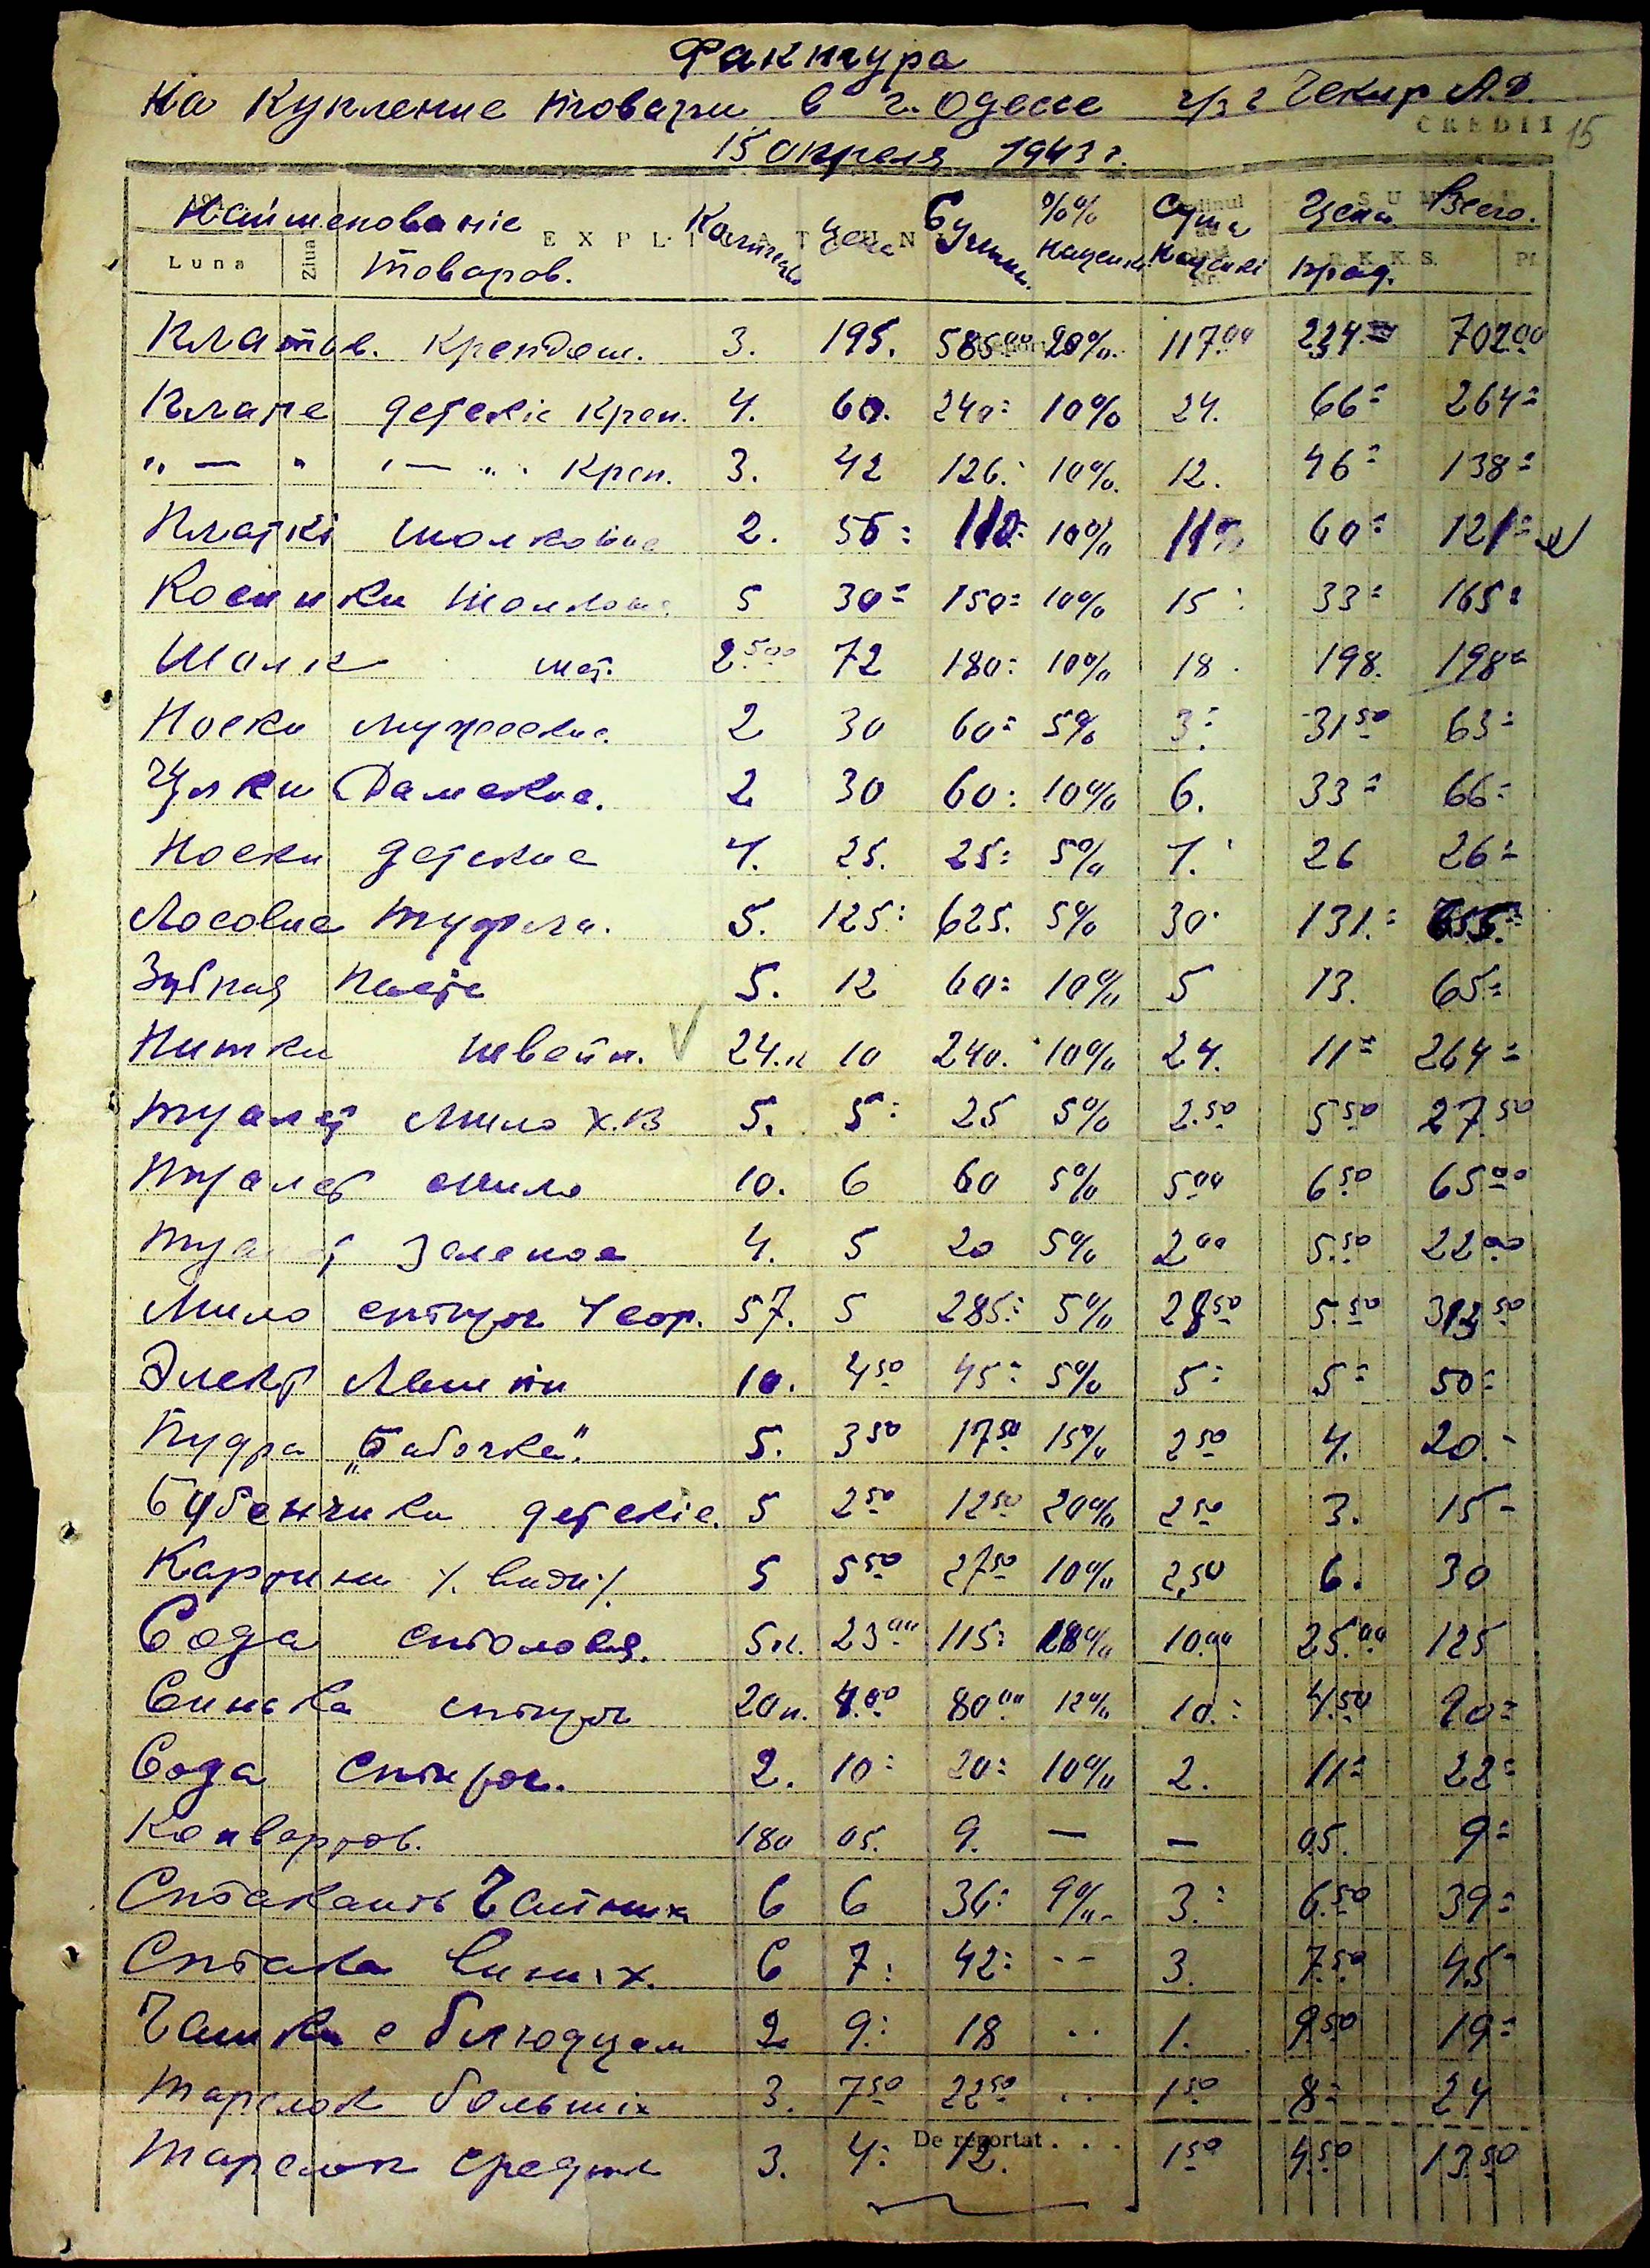 Фактура
На Купление товары в г. Одессе ч/з г Чекир А.Ф.
CREDIT 15
15 апреля 1943 г.
Наименование Колич цена Сумма %% Сума Цена Всего.
EXPLICATIUNI
Luna Ziua товаров. наценк. наценкі прод.
R. K. K. S.
Платов. Крепдеш. 3. 195. 585.00 20% 117.00 234 702.00
Плате детскіе Креп. 4. 60. 240= 10% 24. 66= 264=
"—" —" Креп. 3. 42 126: 10% 12. 46= 138=
Платкі шолковые 2. 55: 110: 10% 11 60= 121=
Косинки Шолковы. 5 30= 150= 10% 15: 33= 165=
Шолк мет. 2.500 72 180: 10% 18. 198. 198=
Носки мужские. 2 30 60= 5% 3: 31.50 63=
Чулки Дамские. 2 30 60: 10% 6. 33= 66=
Носки детские 4. 25. 25: 5% 1. 26 26=
Лосовие туфли. 5. 125: 625. 5% 30. 131.= 655
Зубная Паста 5. 12 60= 10% 5 13. 65=
Нитки швейн. 24.к 10 240. 10% 24. 11= 264=
туалет Мило Х.В 5. 5: 25 5% 2.50 5.50 27.50
туалет мило 10. 6 60 5% 5.00 6.50 65.00
туалет Зеленое 4. 5 20 5% 2.00 5.50 22.00
Мило стироч 4 сор. 57. 5 285: 5% 28.50 5.50 313.50
Электр Лампи 10. 4.50 45= 5% 5: 5= 50=
Пудра „Бабочка". 5. 3.50 17.50 15% 2.50 4. 20.-
Бубенчики детскіе. 5 2.50 12.50 20% 2.50 3. 15-
Картини /. види ./ 5 5.50 27.50 10% 2.50 6. 30
Сода столовая. 5к. 23.00 115: 10% 10.00 25.00 125
Синька стироч 20п. 4.00 80.00 12% 10.: 4.50 90=
Сода стироч. 2. 10: 20: 10% 2. 11= 22=
Конвертов. 180 05. 9. — — 05. 9=
Стаканов Чайних 6 6 36: 9% 3.: 6.50 39=
Стакан Виних. 6 7: 42: -- 3. 7.50 45-
Чашки с блюдцам 2 9: 18 .. 1. 9.50 19=
тарелок большіх 3. 7.50 22.50 .. 1.50 8- 24
De reportat . . .
тарелок средних 3. 4: 12. 1.50 4.50 13.50